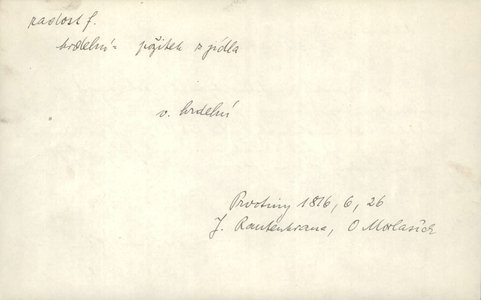 radost f.
hrdelní = požitek z jídla
v. hrdelní
Prvotiny 1816, 6, 26
J. Rautenkranz, O Morlacích